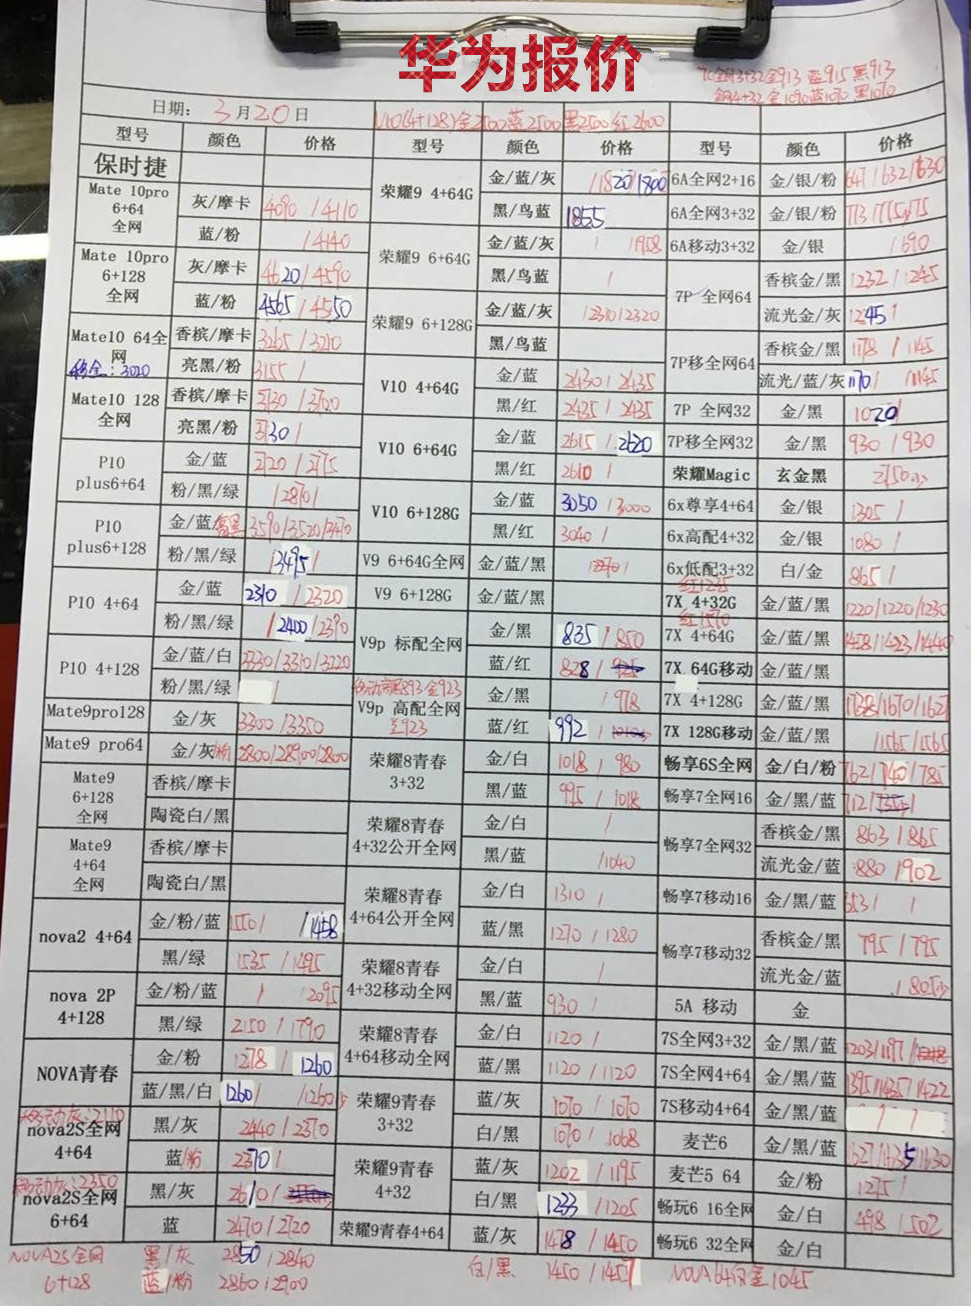 华为报价
日期: 3月20日
V10(4+128)金2500蓝2500黑2500红2600
型号 颜色 价格 型号 颜色 价格 型号 颜色 价格
保时捷
Mate 10pro 6+64 全网
灰/摩卡 4090/4110
蓝/粉 /4140
Mate 10pro 6+128 全网
灰/摩卡 4620/4590
蓝/粉 4565/4550
Mate10 64全网
香槟/摩卡 3265/3210
亮黑/粉 3155/
Mate10 128 全网
香槟/摩卡
亮黑/粉
P10 plus6+64
金/蓝
粉/黑/绿
P10 plus6+128
金/蓝 3590/3520/3470
粉/黑/绿 /3495/
P10 4+64
金/蓝 2310/2320
粉/黑/绿 /2400/2390
P10 4+128
金/蓝/白 3330/3310/3220
粉/黑/绿 /
Mate9pro128 金/灰 3300/3350
Mate9 pro64 金/灰/粉 2800/2800/2800
Mate9 6+128 全网
香槟/摩卡
陶瓷白/黑
Mate9 4+64 全网
香槟/摩卡
陶瓷白/黑
nova2 4+64
金/粉/蓝 /1458
黑/绿 1535/1495
nova 2P 4+128
金/粉/蓝 / 2095
黑/绿 2150/1790
NOVA青春
金/粉 1278/1260
蓝/黑/白 1260/ /1260
移动灰:2110
nova2S全网 4+64
黑/灰 2440/2370
蓝/粉 2370/
移动灰:2350
nova2S全网 6+64
黑/灰 2610/
蓝 2470/2720
NOVA2S全网 6+128
黑/灰 2850/2840
蓝/粉 2860/2900
荣耀9 4+64G
金/蓝/灰 /1820/1800
黑/鸟蓝 1855
荣耀9 6+64G
金/蓝/灰 / 1958
黑/鸟蓝 /
荣耀9 6+128G
金/蓝/灰 2310/2320
黑/鸟蓝
V10 4+64G
金/蓝 2430/2435
黑/红 2435/2435
V10 6+64G
金/蓝 2615/2620
黑/红 2610/
V10 6+128G
金/蓝 3050/3000
黑/红 3040/
V9 6+64G全网 金/蓝/黑
V9 6+128G 金/蓝/黑
V9p 标配全网
金/黑 835/850
蓝/红 828/
V9p 高配全网
金/黑 / 978
蓝/红 992/
荣耀8青春 3+32
金/白 1018/980
黑/蓝 995/1018
荣耀8青春 4+32公开全网
金/白 /
黑/蓝 /1040
荣耀8青春 4+64公开全网
金/白 1310/
蓝/黑 1270/1280
荣耀8青春 4+32移动全网
金/白 /
黑/蓝 930/
荣耀8青春 4+64移动全网
金/白 1120/
蓝/黑 1120/1120
荣耀9青春 3+32
蓝/灰 1070/1070
白/黑 1070/1068
荣耀9青春 4+32
蓝/灰 1202/1195
白/黑 1233/1205
荣耀9青春4+64 蓝/灰 1478/1450
白/黑 1450/1457
6A全网2+16 金/银/粉 647/632/630
6A全网3+32 金/银/粉
6A移动3+32 金/银 /690
7P 全网64
香槟金/黑 1232/1245
流光金/灰 1245/
7P移全网64
香槟金/黑 1178/1145
流光/蓝/灰 1170/ 1145
7P 全网32 金/黑 1020/
7P移全网32 金/黑 930/930
荣耀Magic 玄金黑
6x尊享4+64 金/银 1305/
6x高配4+32 金/银 1080/
6x低配3+32 白/金 865/
红1225
7X 4+32G 金/蓝/黑 1220/1220/1230
7X 4+64G 金/蓝/黑 1458/1423/1440
7X 64G移动 金/蓝/黑
7X 4+128G 金/蓝/黑
7X 128G移动 金/蓝/黑 /1565/1565
畅享6S全网 金/白/粉 762/740/785
畅享7全网16 金/黑/蓝
畅享7全网32
香槟金/黑 863/865
流光金/蓝 880/902
畅享7移动16 金/黑/蓝
畅享7移动32
香槟金/黑 795/795
流光金/蓝 /805
5A 移动 金
7S全网3+32 金/黑/蓝
7S全网4+64 金/黑/蓝
7S移动4+64 金/黑/蓝 / /
麦芒6 金/黑/蓝
麦芒5 64 金/粉 1275/
畅玩6 16全网 金/白 498/502
畅玩6 32全网 金/白
NOVA 64仅金1045